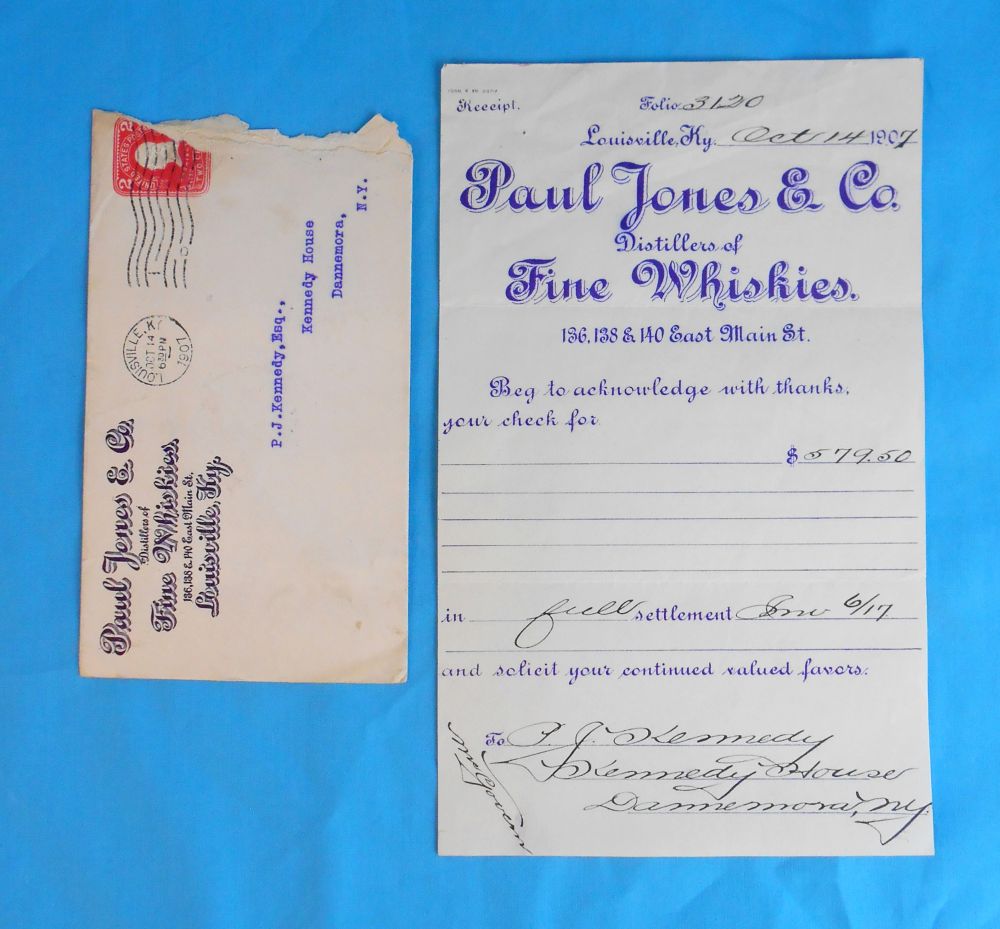 2 STATES PO
2
TWO C
LOUISVILLE, KY
OCT 14
6 30 PM
1907
P.J.Kennedy,Esq.,
Kennedy House
Dannemora,
N.Y.
Paul Jones & Co.
Distillers of
Fine Whiskies.
136, 138 & 140 East Main St.
Louisville, Ky.
Receipt. Folio 3120
Louisville, Ky. Oct 14 1907
Paul Jones & Co.
Distillers of
Fine Whiskies.
136, 138 & 140 East Main St.
Beg to acknowledge with thanks,
your check for
$ 579.50
in full settlement Inv 6/17
and solicit your continued valued favors.
To P. J. Kennedy
Kennedy House
Dannemora, NY.
McGovern